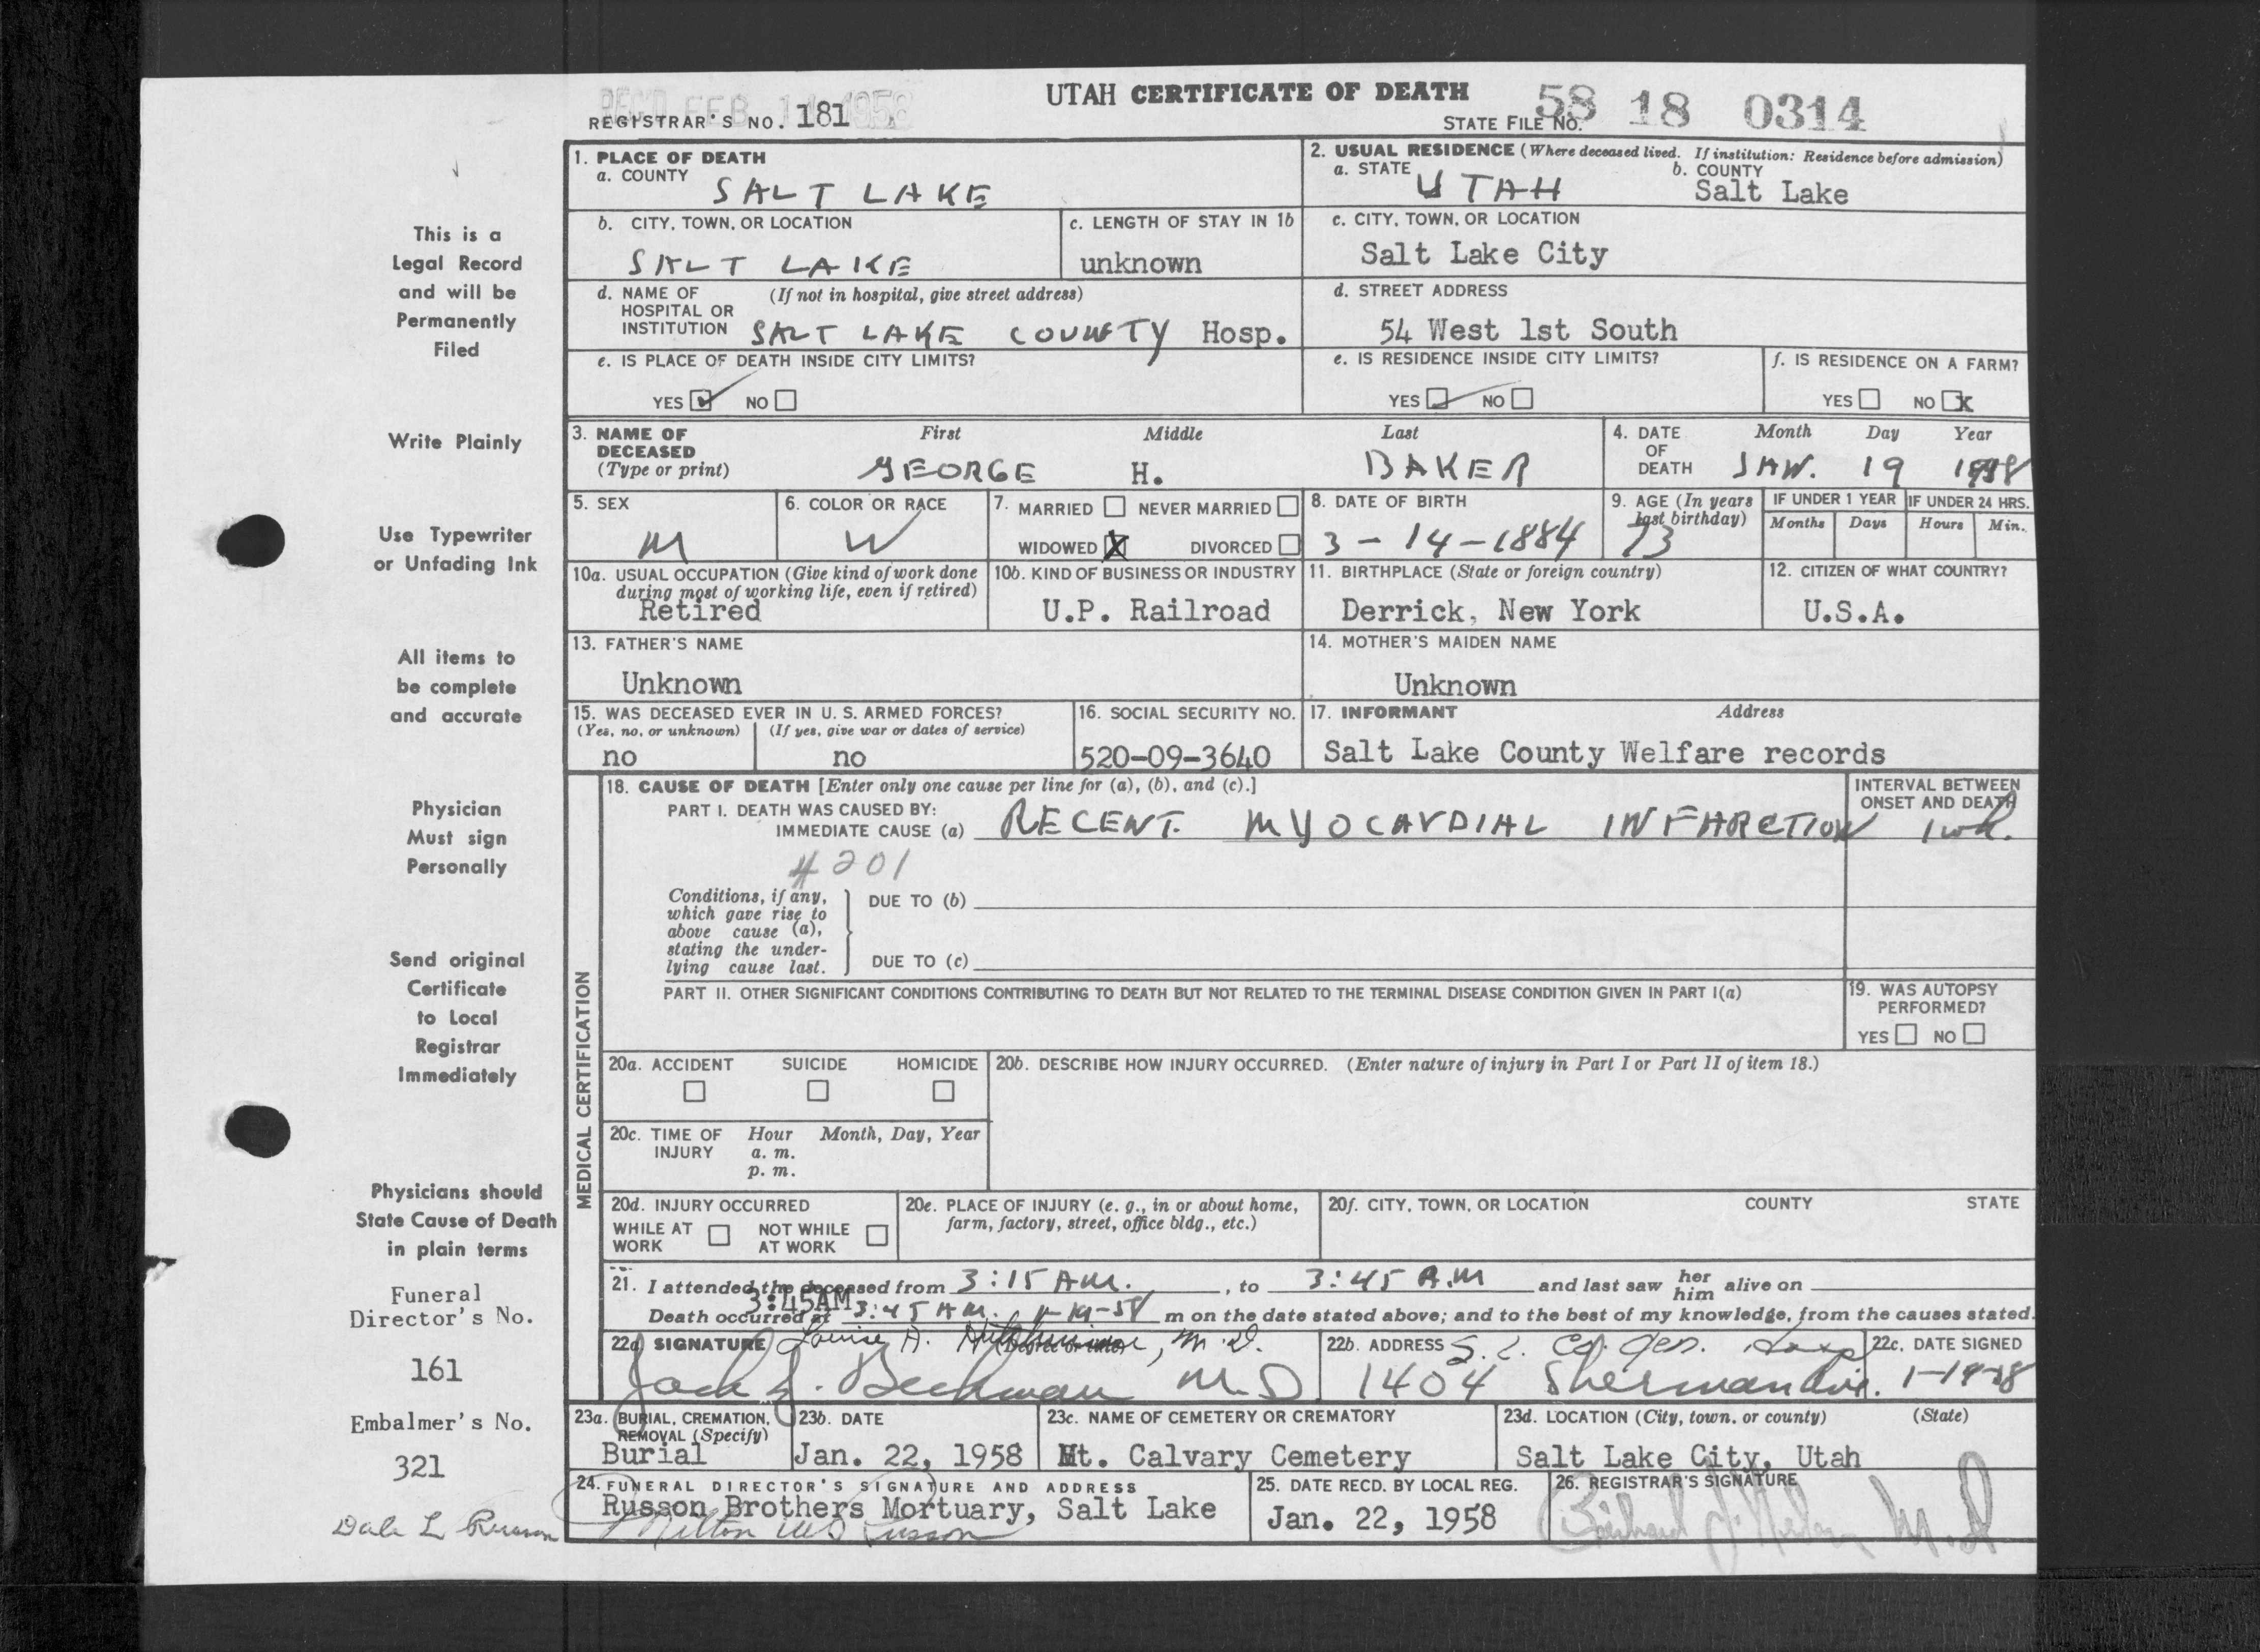 UTAH CERTIFICATE OF DEATH
REC'D FEB 1958
REGISTRAR'S NO. 181
STATE FILE NO. 58 18 0314
This is a
Legal Record
and will be
Permanently
Filed
Write Plainly
Use Typewriter
or Unfading Ink
All items to
be complete
and accurate
Physician
Must sign
Personally
Send original
Certificate
to Local
Registrar
Immediately
Physicians should
State Cause of Death
in plain terms
Funeral
Director's No.
161
Embalmer's No.
321
Dale L Russon
1. PLACE OF DEATH
a. COUNTY
SALT LAKE
2. USUAL RESIDENCE (Where deceased lived. If institution: Residence before admission)
a. STATE UTAH
b. COUNTY
Salt Lake
b. CITY, TOWN, OR LOCATION
SALT LAKE
c. LENGTH OF STAY IN 1b
unknown
c. CITY, TOWN, OR LOCATION
Salt Lake City
d. NAME OF (If not in hospital, give street address)
HOSPITAL OR
INSTITUTION SALT LAKE COUNTY Hosp.
d. STREET ADDRESS
54 West 1st South
e. IS PLACE OF DEATH INSIDE CITY LIMITS?
YES NO
e. IS RESIDENCE INSIDE CITY LIMITS?
YES NO
f. IS RESIDENCE ON A FARM?
YES NO X
3. NAME OF First Middle Last
DECEASED
(Type or print) GEORGE H. BAKER
4. DATE Month Day Year
OF
DEATH JAN. 19 1958
5. SEX
M
6. COLOR OR RACE
W
7. MARRIED NEVER MARRIED
WIDOWED X DIVORCED
8. DATE OF BIRTH
3-14-1884
9. AGE (In years
last birthday)
73
IF UNDER 1 YEAR
Months Days
IF UNDER 24 HRS.
Hours Min.
10a. USUAL OCCUPATION (Give kind of work done
during most of working life, even if retired)
Retired
10b. KIND OF BUSINESS OR INDUSTRY
U.P. Railroad
11. BIRTHPLACE (State or foreign country)
Derrick, New York
12. CITIZEN OF WHAT COUNTRY?
U.S.A.
13. FATHER'S NAME
Unknown
14. MOTHER'S MAIDEN NAME
Unknown
15. WAS DECEASED EVER IN U. S. ARMED FORCES?
(Yes, no, or unknown) (If yes, give war or dates of service)
no no
16. SOCIAL SECURITY NO.
520-09-3640
17. INFORMANT Address
Salt Lake County Welfare records
MEDICAL CERTIFICATION
18. CAUSE OF DEATH [Enter only one cause per line for (a), (b), and (c).]
PART I. DEATH WAS CAUSED BY:
IMMEDIATE CAUSE (a) RECENT MYOCARDIAL INFARCTION
INTERVAL BETWEEN
ONSET AND DEATH
1 wk.
4201
Conditions, if any,
which gave rise to
above cause (a),
stating the under-
lying cause last.
DUE TO (b)
DUE TO (c)
PART II. OTHER SIGNIFICANT CONDITIONS CONTRIBUTING TO DEATH BUT NOT RELATED TO THE TERMINAL DISEASE CONDITION GIVEN IN PART I(a)
19. WAS AUTOPSY
PERFORMED?
YES NO
20a. ACCIDENT SUICIDE HOMICIDE
20b. DESCRIBE HOW INJURY OCCURRED. (Enter nature of injury in Part I or Part II of item 18.)
20c. TIME OF Hour Month, Day, Year
INJURY a. m.
p. m.
20d. INJURY OCCURRED
WHILE AT WORK NOT WHILE AT WORK
20e. PLACE OF INJURY (e. g., in or about home,
farm, factory, street, office bldg., etc.)
20f. CITY, TOWN, OR LOCATION COUNTY STATE
21. I attended the deceased from 3:15 AM. , to 3:45 A.M and last saw her him alive on
3:45AM
Death occurred at 3:45 AM. 1-19-58 m on the date stated above; and to the best of my knowledge, from the causes stated.
22a. SIGNATURE Louise A. , M.D.
Jack J. Beckman M.D
22b. ADDRESS S. L. Co. Gen. Hosp
1404 Sherman Ave.
22c. DATE SIGNED
1-19-58
23a. BURIAL, CREMATION,
REMOVAL (Specify)
Burial
23b. DATE
Jan. 22, 1958
23c. NAME OF CEMETERY OR CREMATORY
Mt. Calvary Cemetery
23d. LOCATION (City, town, or county) (State)
Salt Lake City, Utah
24. FUNERAL DIRECTOR'S SIGNATURE AND ADDRESS
Russon Brothers Mortuary, Salt Lake
Milton Russon
25. DATE RECD. BY LOCAL REG.
Jan. 22, 1958
26. REGISTRAR'S SIGNATURE
M.D